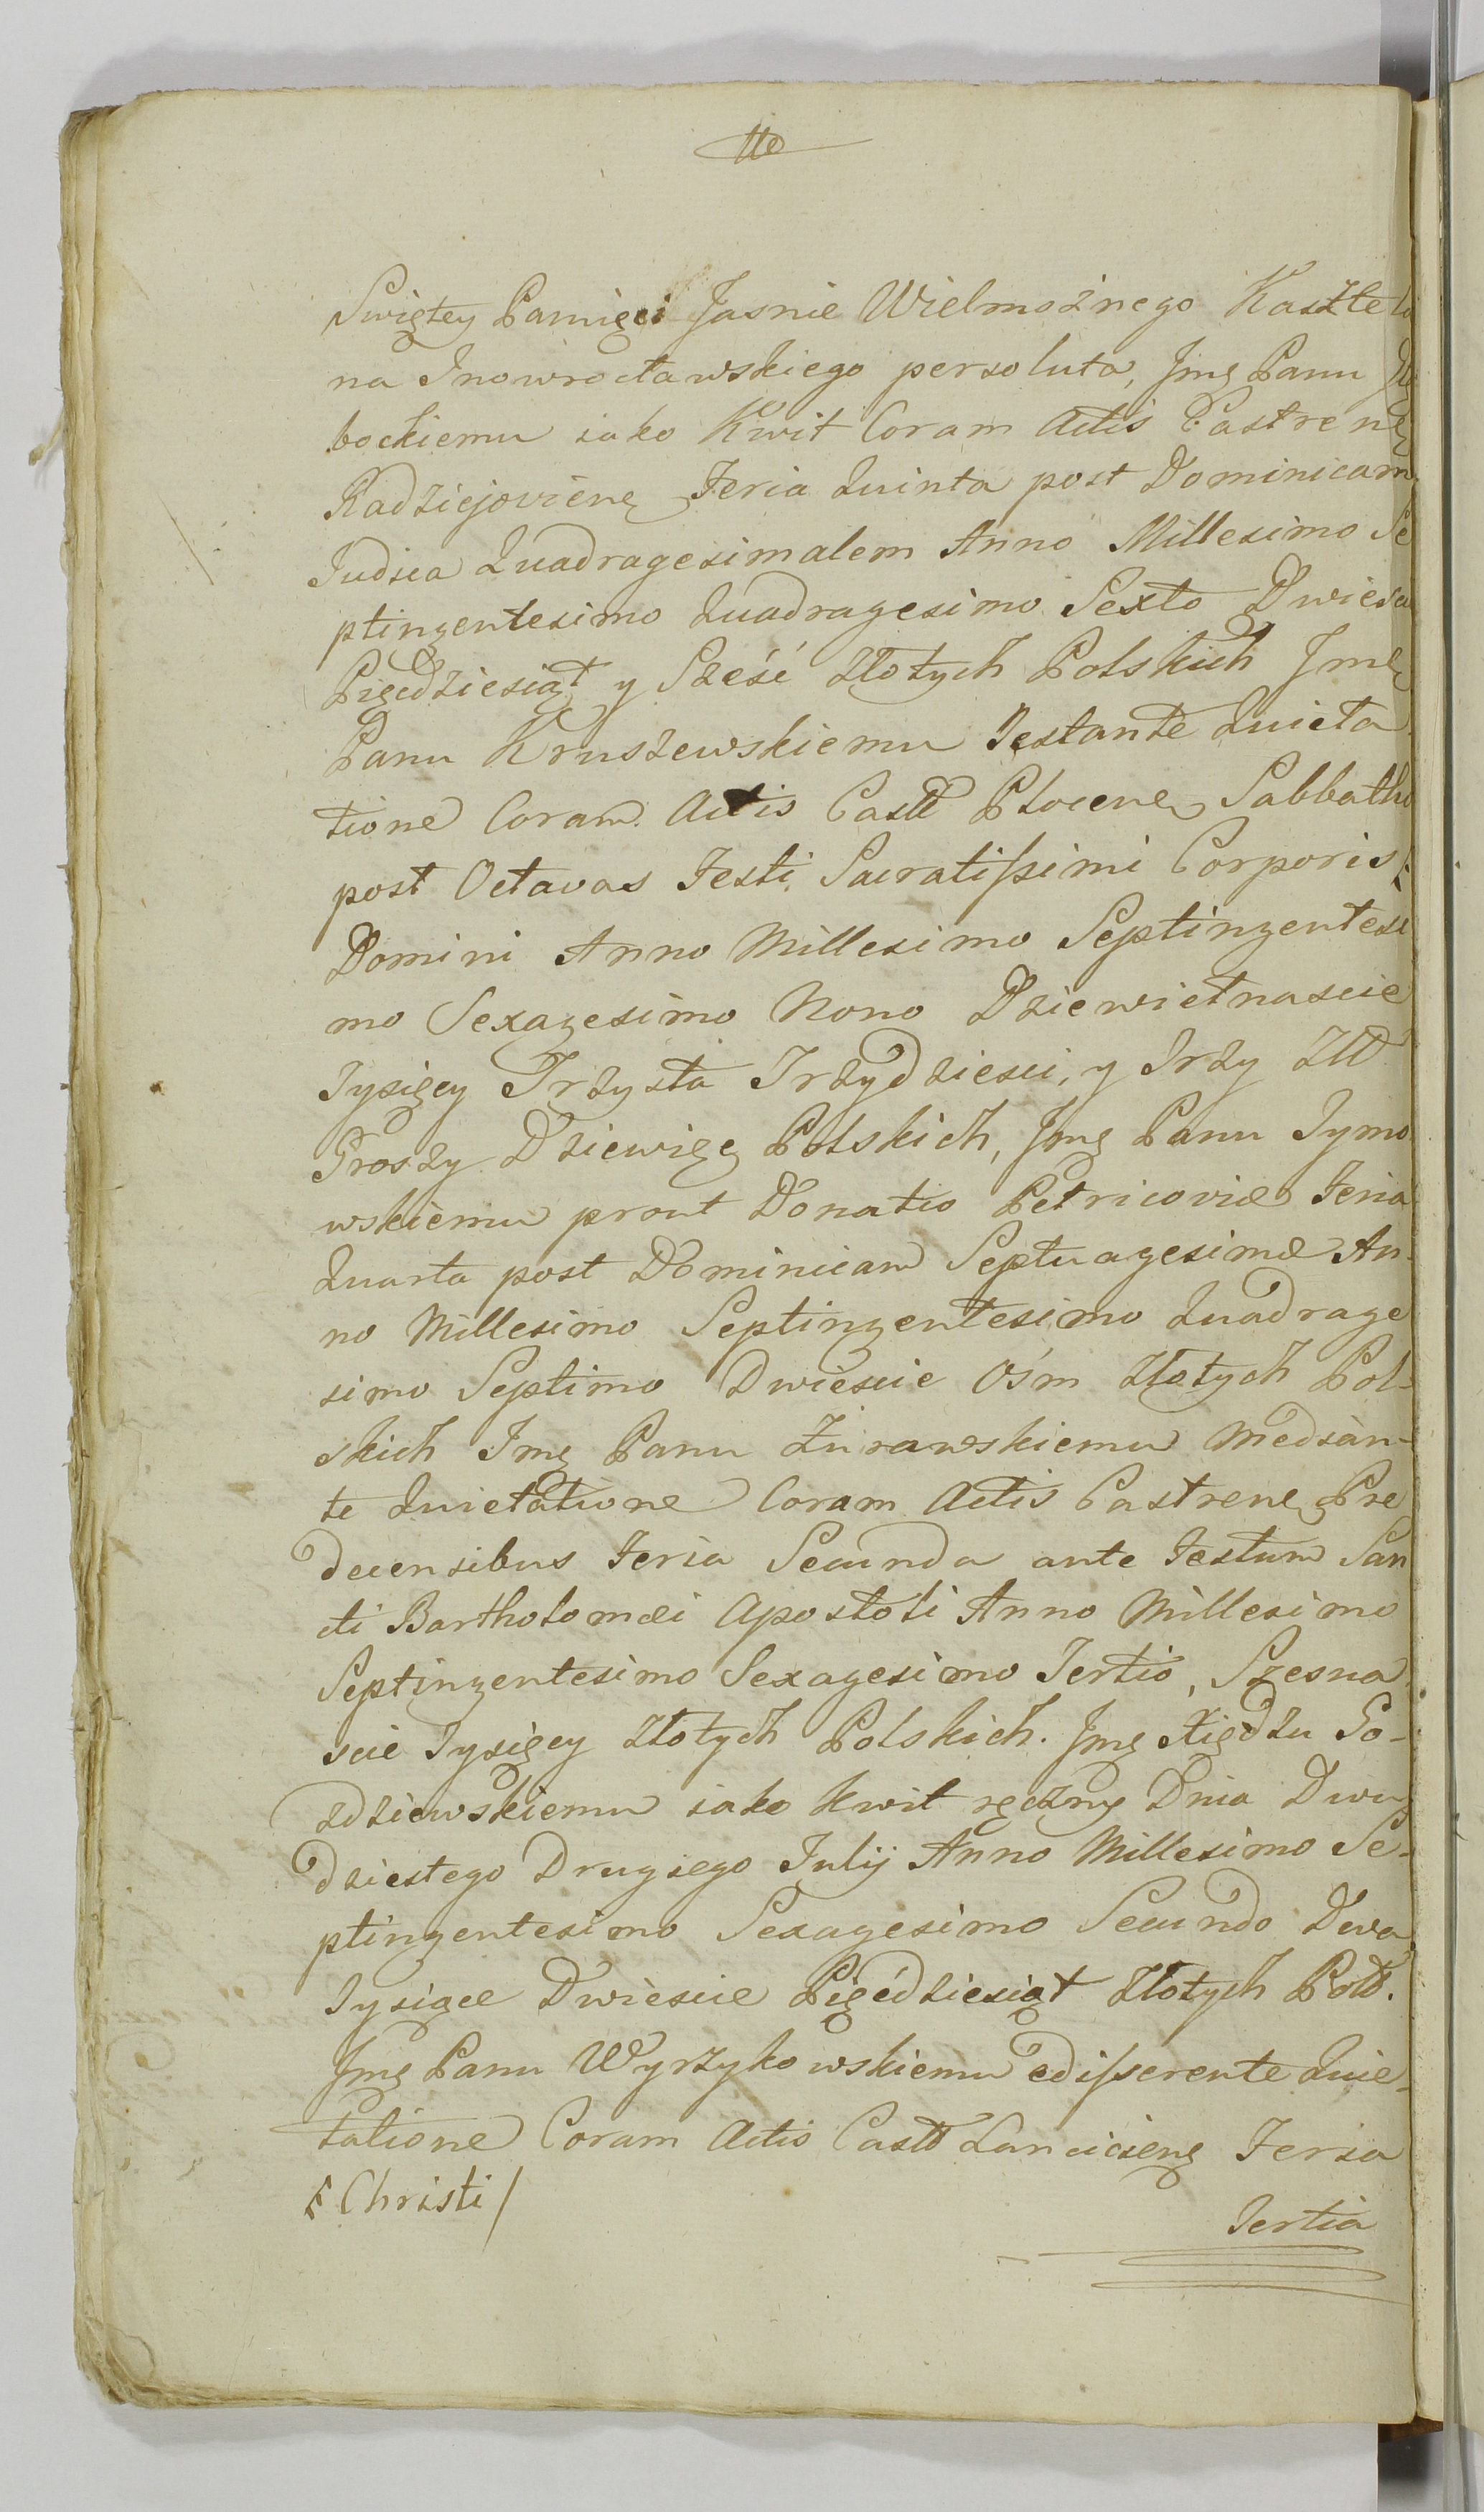 Swiętey Pamięci Jasnie Wielmożnego Kasztela
na Inowrocławskiego persoluta, Jmę Panu Głę
bockiemu iako Kwit Coram Actis Castrenę
Radziejovienę Feria Quinta post Dominicam
Judica Quadragesimalem Anno Millesimo Se
ptingentesimo Quadragesimo Sexto Dwiesa
Pięcdziesiąt y Sześć Złotych Polskich Jmę
Panu Kruszewskiemu Testante Quieta
tione Coram Actis Castr Plocenę Sabbatho
post Octavas Festi Sacratissimi Corporis ⁑
Domini Anno Millesimo Septingentesi
mo Sexagesimo Nono Dziewietnascie
Tysięcy Trzysta Trzydziesci, y Trzy Złł
Groszy Dziewięc Polskich, Jmę Panu Tymo
wskiemu prout Donatio Petricoviæ Feria
Quarta post Dominicam Septuagesimæ An-
no Millesimo Septingentesimo Quadrage
simo Septimo Dwiescie Ośm Złotych Pol-
skich Jmę Panu Żurawskiemu Median-
te Quietatione Coram Actis Castrenę Pre
decensibus Feria Secunda ante Festum San
cti Bartholomæi Apostoli Anno Millesimo
Septingentesimo Sexagesimo Tertio, Szesna
scie Tysięcy Złotych Polskich. Jmę Xiędzu Go-
zdziewskiemu iako Kwit ręczny Dnia Dwu
dziestego Drugiego Julij Anno Millesimo Se-
ptingentesimo Sexagesimo Secundo Dwa
Tysiące Dwiescie Pięćdziesiąt Złotych Poll.
Jmę Panu Wyrzykowskiemu edisserente Quie-
tatione Coram Actis Castr Lancicienę Feria
⁑ Christi /
Tertia